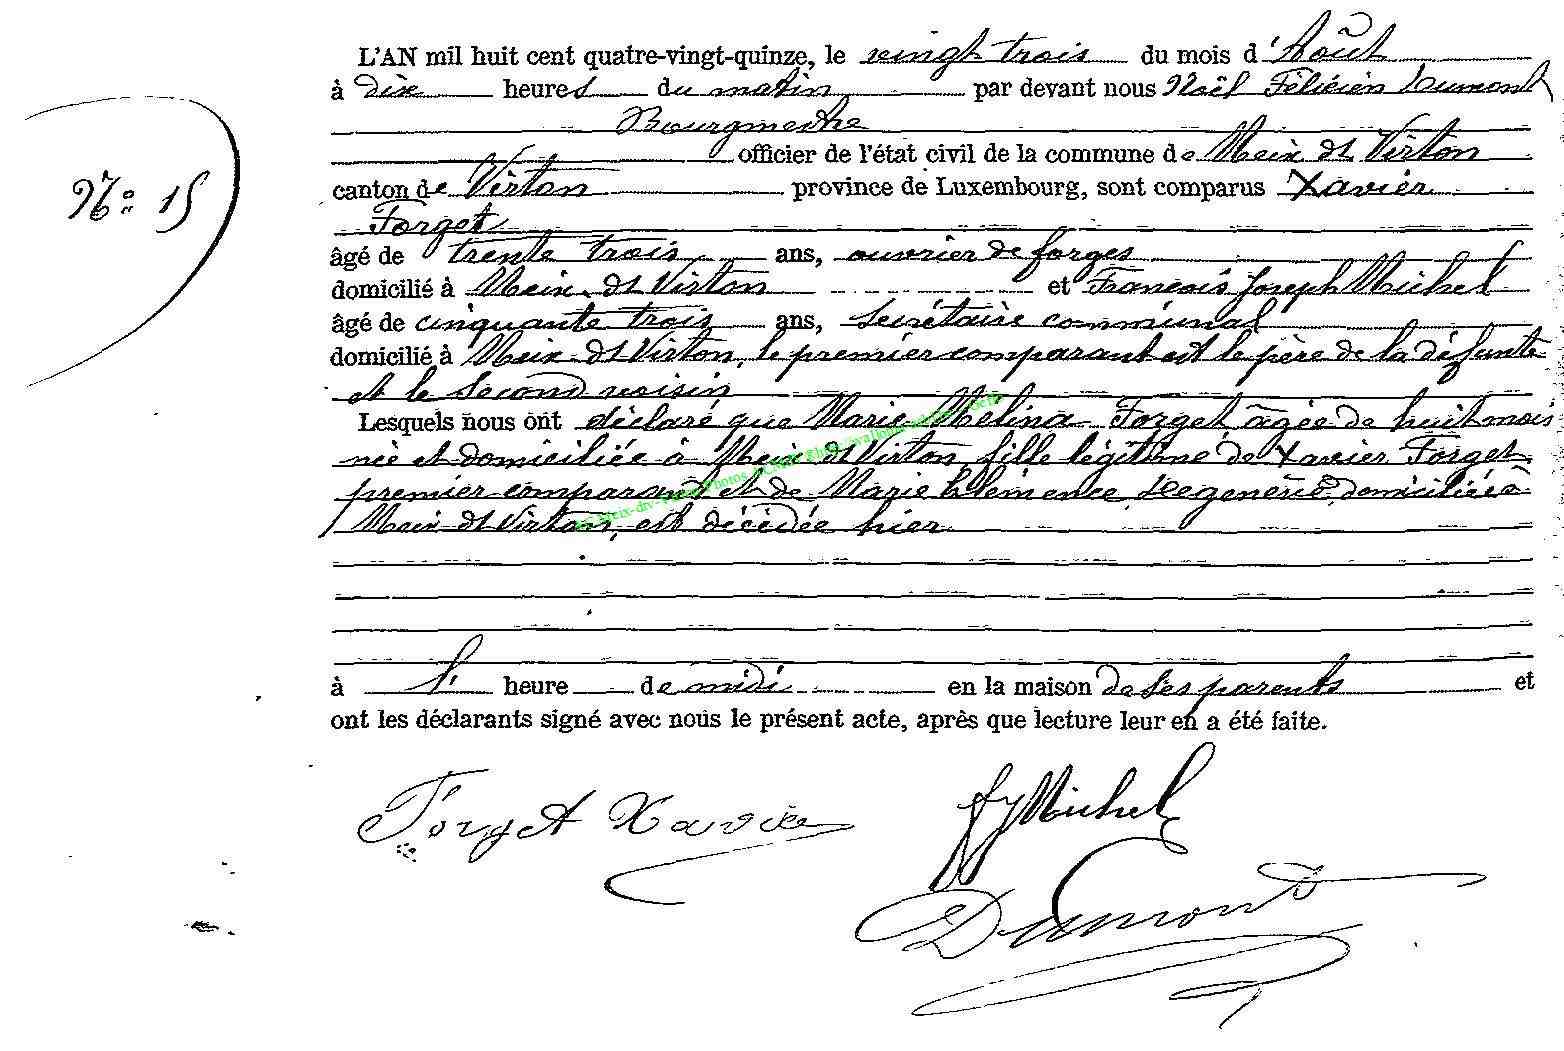 L'AN mil huit cent quatre-vingt-quinze, le vingt trois du mois d'Août
à dix heures du matin par devant nous Noël Félicien Dumont
Bourgmestre
officier de l'état civil de la commune de Meix dt Virton
N° 15
canton de Virton province de Luxembourg, sont comparus Xavier
Forget
âgé de trente trois ans, ouvrier de forges
domicilié à Meix dt Virton et François Joseph Michel
âgé de cinquante trois ans, secrétaire communal
domicilié à Meix dt Virton, le premier comparant est le père de la défunte
et le second voisin
Lesquels nous ont déclaré que Marie Mélina Forget âgée de huit mois
née et domiciliée à Meix dt Virton, fille légitime de Xavier Forget
premier comparant et de Marie Clémence domiciliée à
Meix dt Virton, est décédée hier
à 1 heure de midi en la maison de ses parents et
ont les déclarants signé avec nous le présent acte, après que lecture leur en a été faite.
Forget Xavier
fj Michel
Dumont